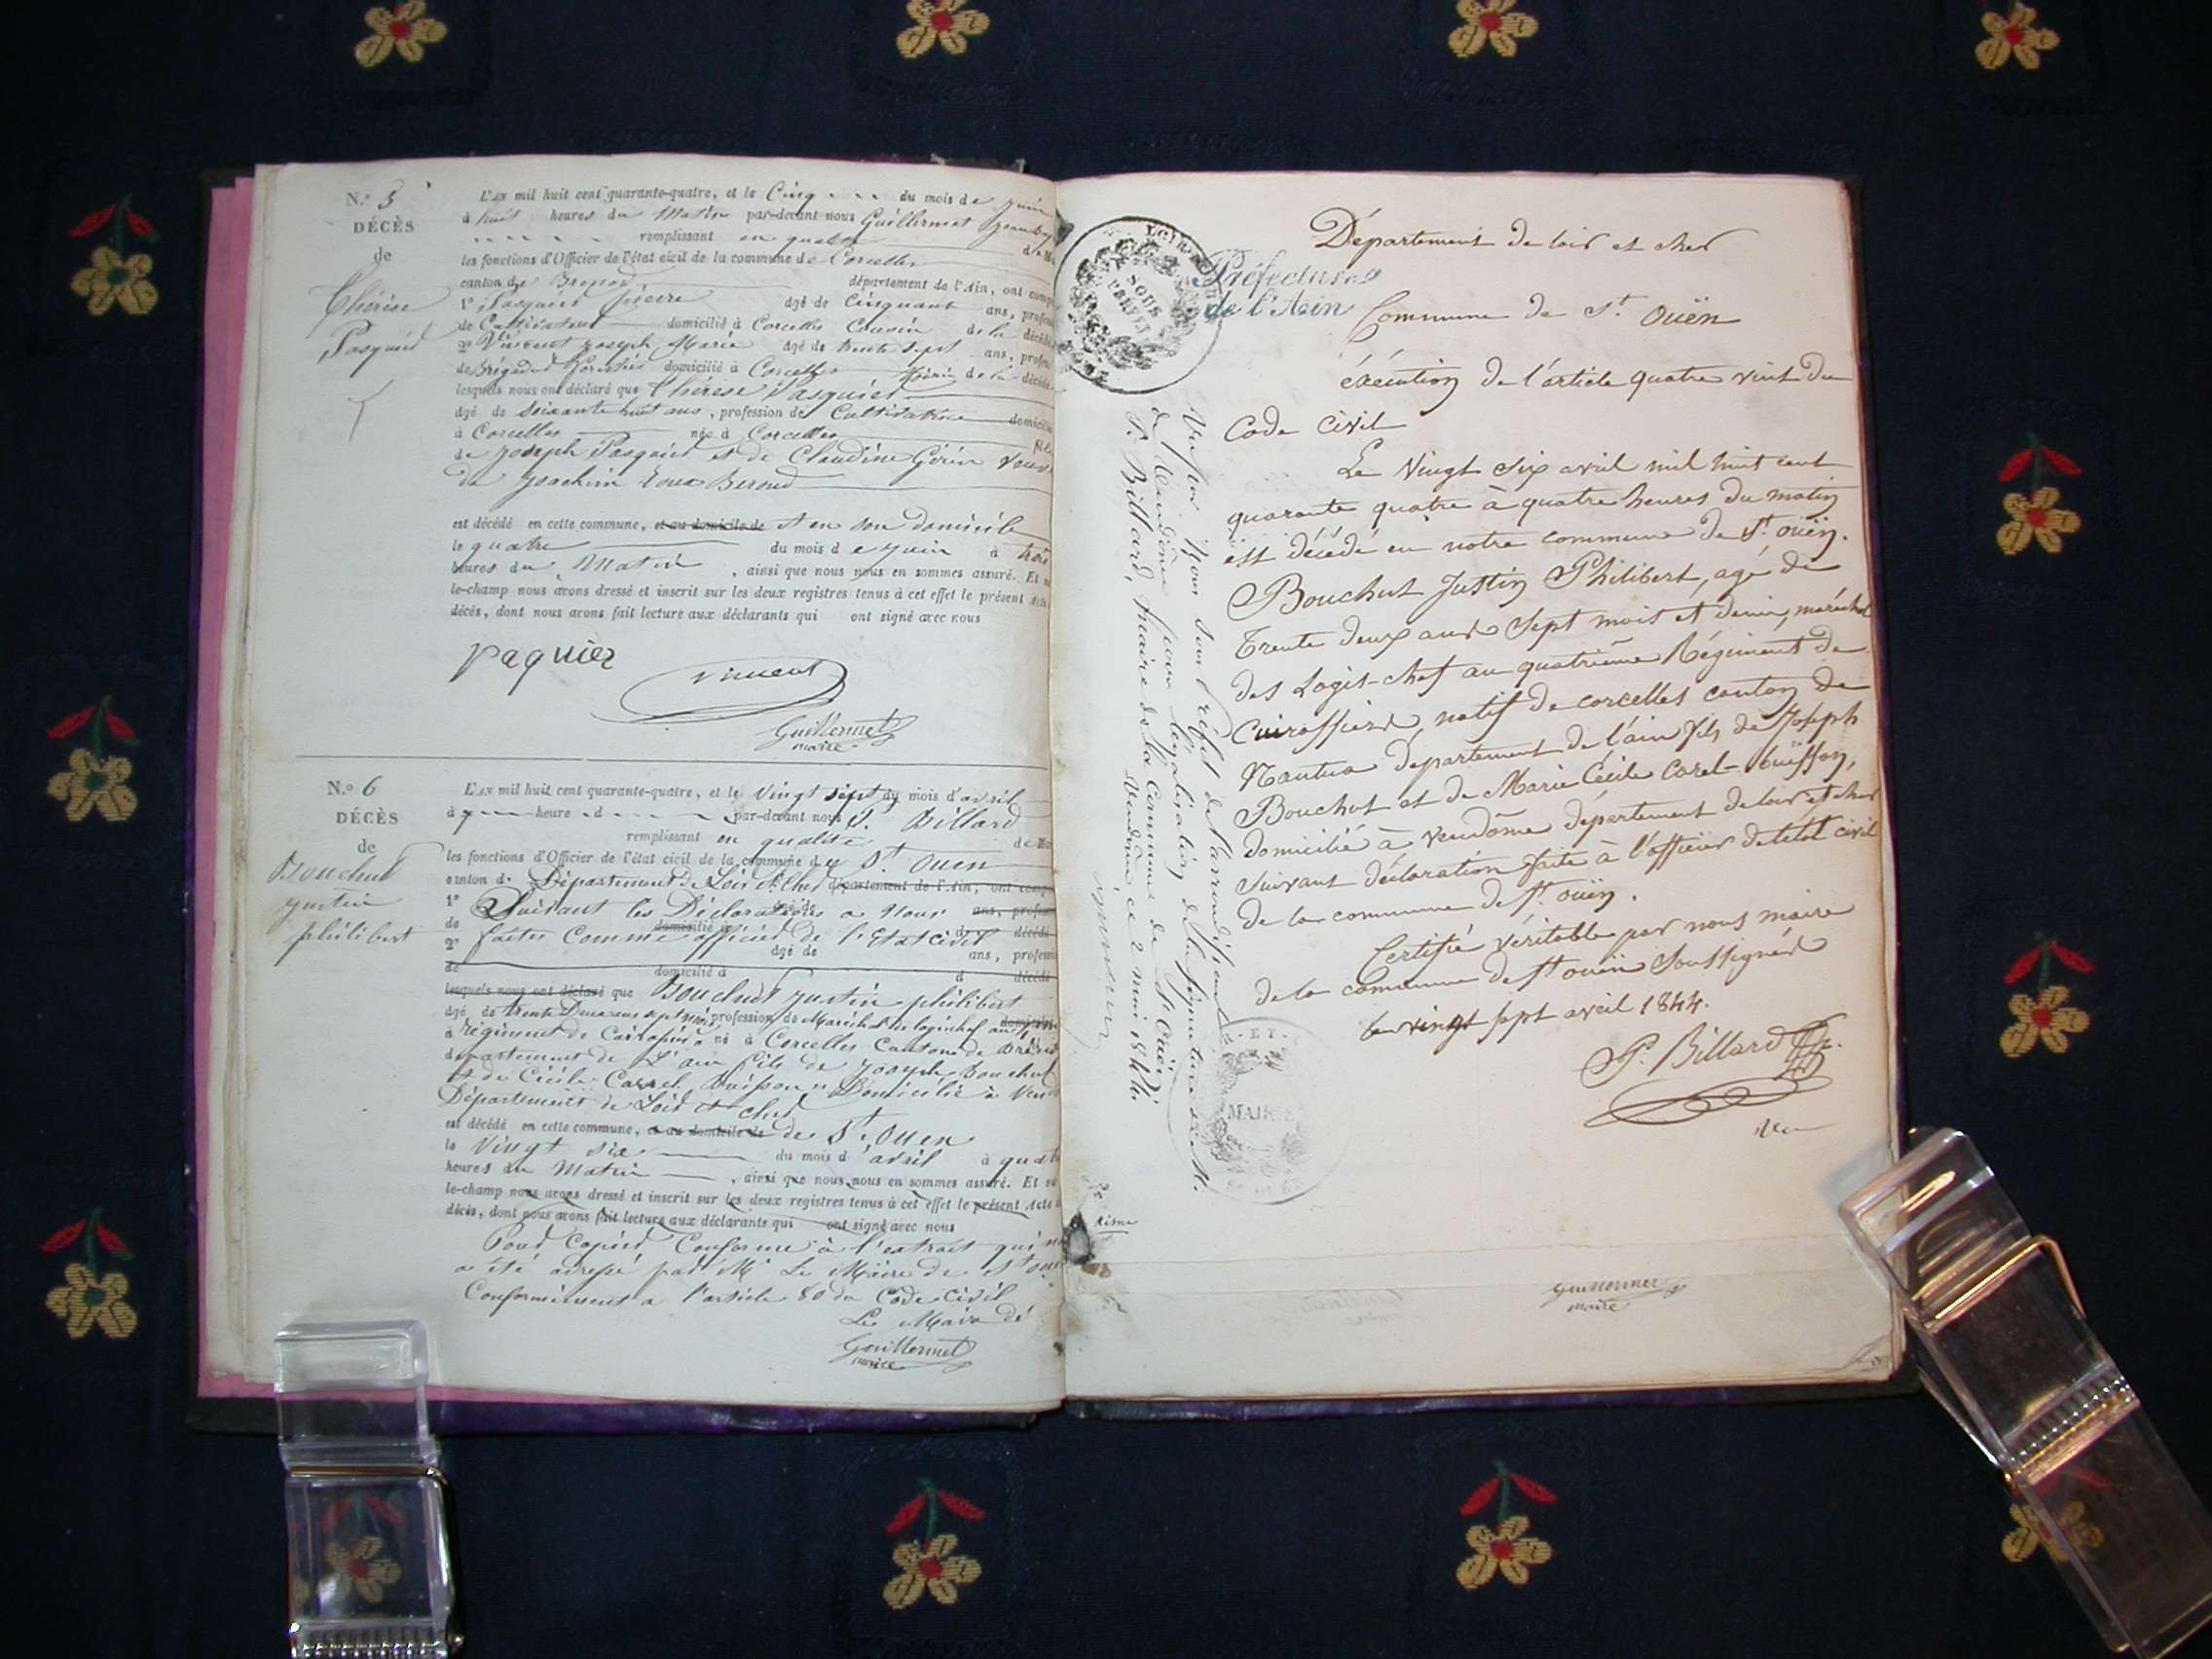 N.o 5
DÉCÈS
de
Thérèse
Pasquier
L'AN mil huit cent quarante-quatre, et le Cinq du mois de juin
à huit heures du Matin par-devant nous Guillermet
remplissant en qualité de
les fonctions d'Officier de l'état civil de la commune de Corcelles
canton de Brenod département de l'Ain, ont comp
1° Pasquier Pierre agé de Cinquante ans, profess
de Cultivateur domicilié à Corcelles Cousin de la décédée
2° Vincent Joseph Marie agé de trente sept ans, profess
de Brigadier forestier domicilié à Corcelles Voisin de la décédée
lesquels nous ont déclaré que Thérèse Pasquier
agé de Soixante huit ans, profession de Cultivatrice domicilié
à Corcelles née à Corcelles fille
de Joseph Pasquier et de Claudine Girin Veuve
de Joachim Roux Beroud
est décédé en cette commune, et au domicile de et en son domicile
le quatre du mois de juin à trois
heures du Matin, ainsi que nous nous en sommes assuré. Et
le-champ nous avons dressé et inscrit sur les deux registres tenus à cet effet le présent Acte
décès, dont nous avons fait lecture aux déclarants qui ont signé avec nous
paquier
Vincent
Guillermet
maire
N.o 6
DÉCÈS
de
Bouchut
justin
philibert
L'AN mil huit cent quarante-quatre, et le Vingt sept du mois d'avril
à heure d par-devant nous P. Billard
remplissant en qualité de
les fonctions d'Officier de l'état civil de la commune de St. Ouen
canton d. Département de Loir et Cher département de l'Ain, ont comp
1° Suivant les Déclarations a Nous agé de ans, profess
de faites Comme officier de l'Etat civil domicilié à d décédé
2° agé de ans, profess
de domicilié à d décédé
lesquels nous ont déclaré que Bouchut justin philibert
agé de trente Deux ans sept mois profession de Maréchal des logis chef au 4
à régiment de Cuirassiers né à Corcelles Canton de Brénod
département de L'ain fils de Joseph Bouchut
et de Cécile Carrel Buisson Domicilié à Ven
Département de Loir et cher
est décédé en cette commune, et au domicile de de St. Ouen
le Vingt six du mois d'avril à quatre
heures du Matin, ainsi que nous nous en sommes assuré. Et
le-champ nous avons dressé et inscrit sur les deux registres tenus à cet effet le présent Acte
décès, dont nous avons fait lecture aux déclarants qui ont signé avec nous
Pour Copie Conforme à l'extrait qui
a été adressé par Mr Le Maire de St Ouen
Conformément a l'article 80 du Code civil
Le Maire
Guillermet
maire
Département de loir et cher
Préfecture
de l'Ain
Commune de St. Ouën
éxécution de l'article quatre vint du
Code Civil
Le Vingt Six avril mil huit cent
quarante quatre à quatre heures du matin
est décédé en notre commune de St. ouën.
Bouchut Justin Philibert, agé de
trente deux ans sept mois et demi, maréchal
des Logis-chef au quatrième Régiment de
Cuirassiers natif de corcelles canton de
Nantua département de l'ain fils de Joseph
Bouchut et de Marie Cécile Carel-buisson,
domicilié à vendôme département de loir et cher
suivant déclaration faite à l'officier de l'état civil
de la commune de St. ouën.
Certifié véritable par nous maire
de la commune de St ouën Soussigné
le vingt sept avril 1844.
P. Billard
Vu par Nous Sous Préfet de l'arrondissement
de Vendôme pour légalisation de la signature de M.
P. Billard, maire de la Commune de St Ouën.
Vendôme ce 2 mai 1844.
MAIRIE
Guillermet
maire